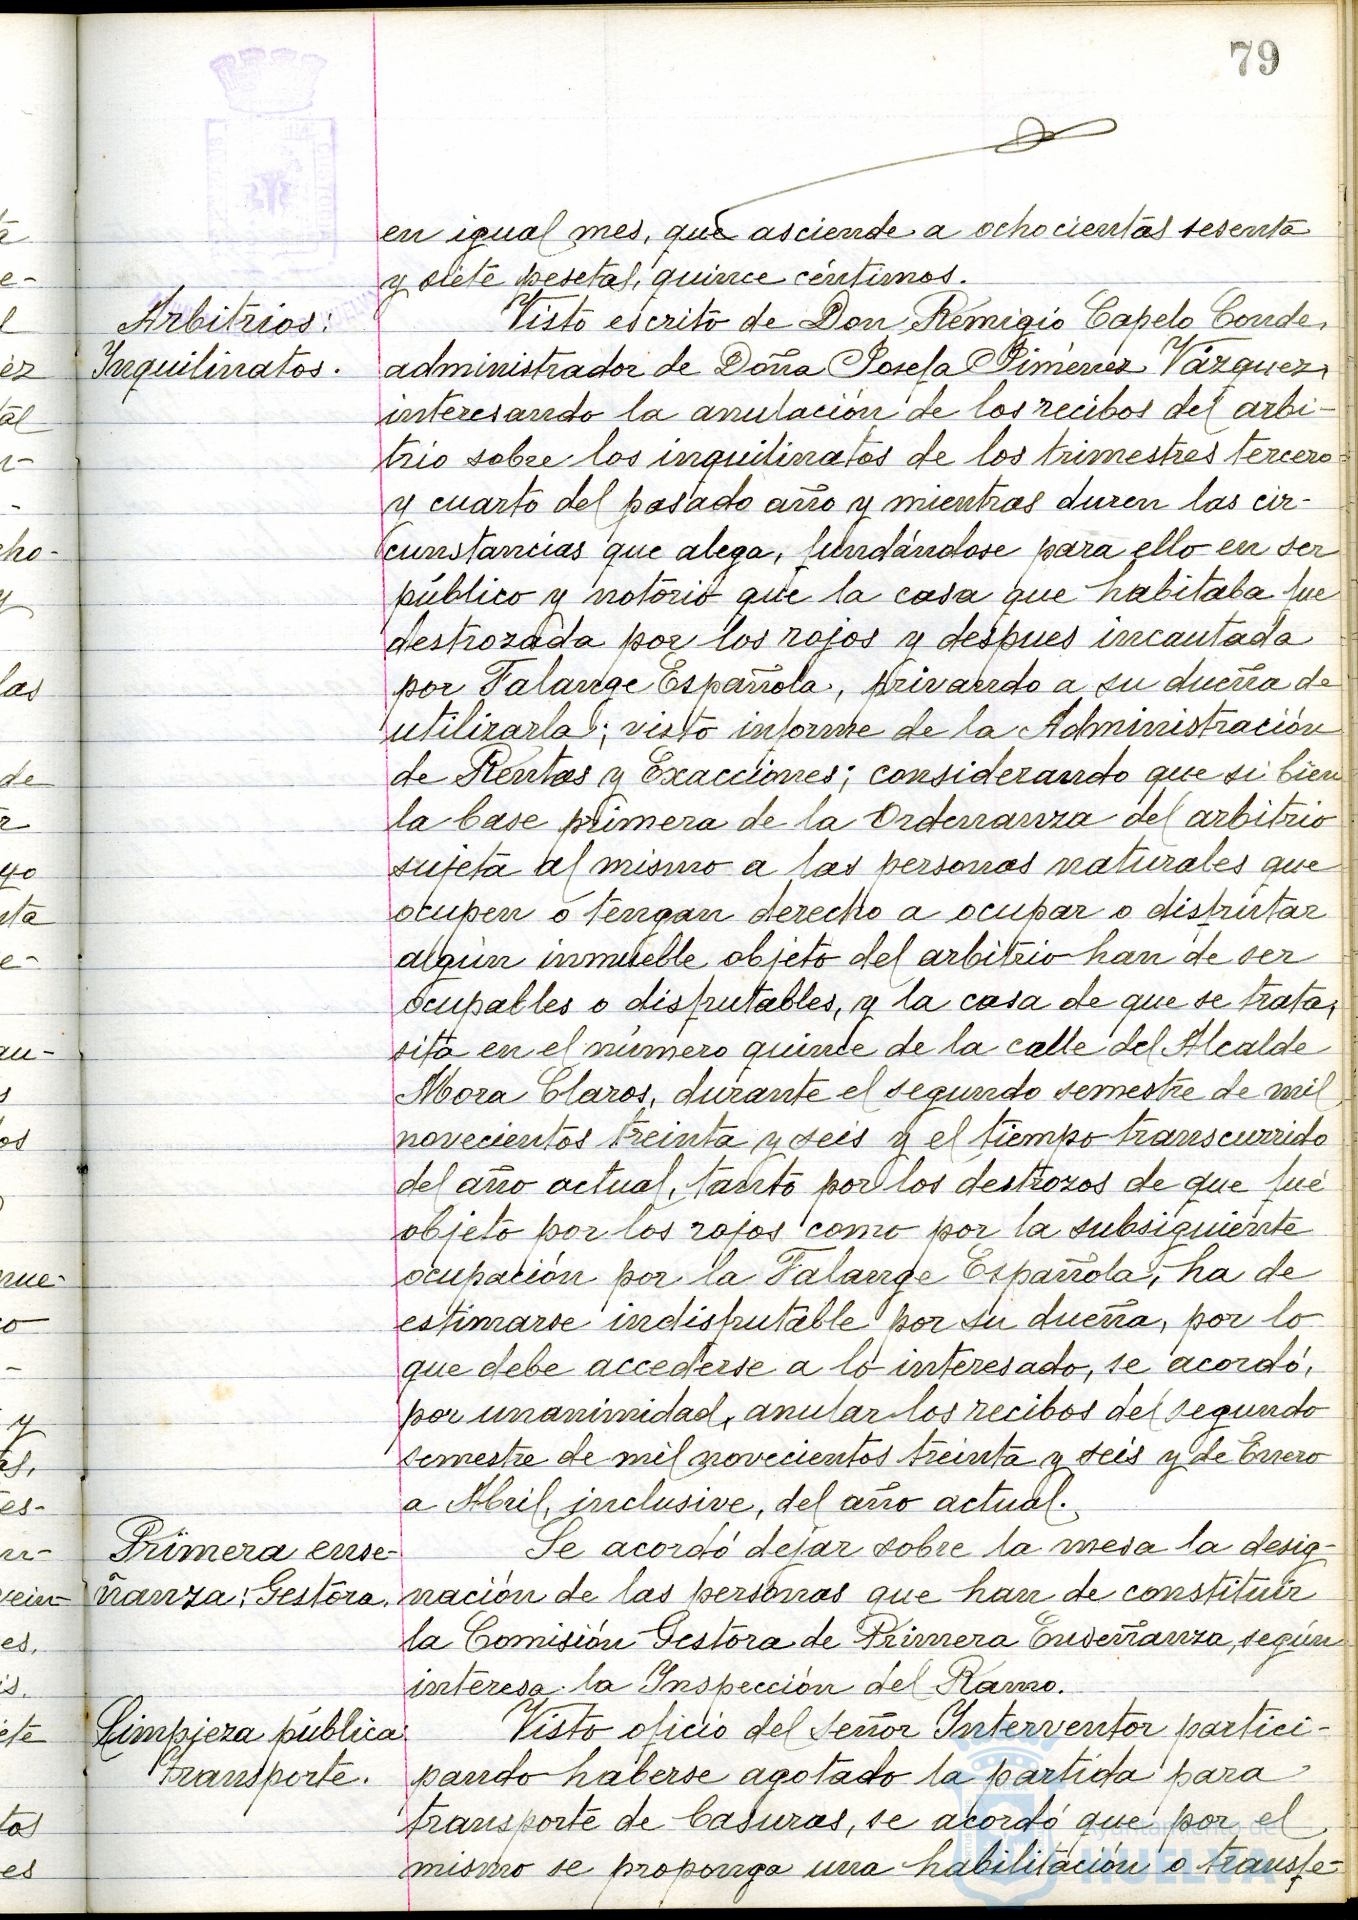 79
en igual mes, que asciende a ochocientas sesenta
y siete pesetas, quince céntimos.
Arbitrios:
Inquilinatos.
Visto escrito de Don Remigio Capelo Conde,
administrador de Doña Josefa Jiménez Vázquez,
interesando la anulación de los recibos del arbi-
trio sobre los inquilinatos de los trimestres tercero
y cuarto del pasado año y mientras duren las cir-
cunstancias que alega, fundándose para ello en ser
público y notorio que la casa que habitaba fue
destrozada por los rojos y despues incautada
por Falange Española, privando a su dueña de
utilizarla; visto informe de la Administración
de Rentas y Exacciones; considerando que si bien
la base primera de la Ordenanza del arbitrio
sujeta al mismo a las personas naturales que
ocupen o tengan derecho a ocupar o disfrutar
algún inmueble objeto del arbitrio han de ser
ocupables o disfrutables, y la casa de que se trata,
sita en el número quince de la calle del Alcalde
Mora Claros, durante el segundo semestre de mil
novecientos treinta y seis y el tiempo transcurrido
del año actual, tanto por los destrozos de que fué
objeto por los rojos como por la subsiguiente
ocupación por la Falange Española, ha de
estimarse indisfrutable por su dueña, por lo
que debe accederse a lo interesado, se acordó,
por unanimidad, anular los recibos del segundo
semestre de mil novecientos treinta y seis y de Enero
a Abril, inclusive, del año actual.
Primera ense-
ñanza: Gestora.
Se acordó dejar sobre la mesa la desig-
nación de las personas que han de constituir
la Comisión Gestora de Primera Enseñanza, según
interesa la Inspección del Ramo.
Limpieza pública
Transporte.
Visto oficio del señor Interventor partici-
pando haberse agotado la partida para
transporte de basuras, se acordó que por el
mismo se proponga una habilitación o transfe-
Ayuntamiento de
HUELVA